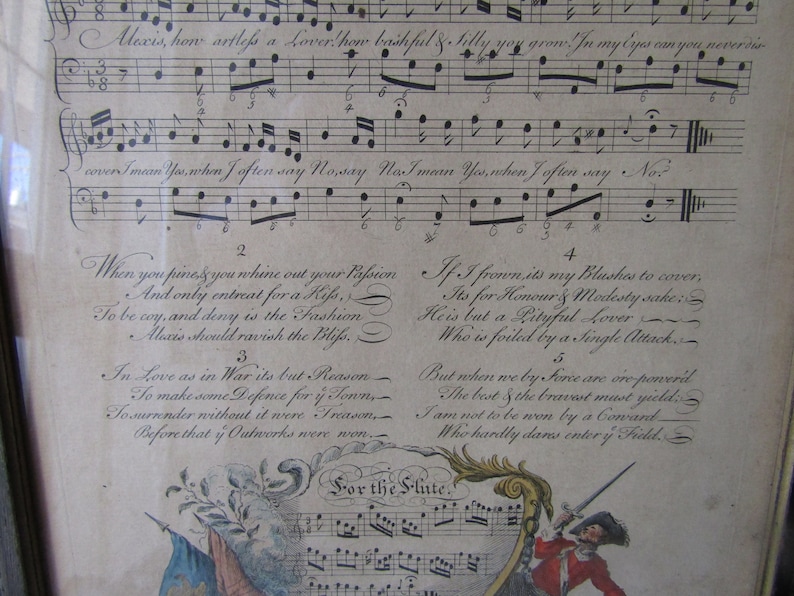 Alexis, how artless a Lover! how bashful & Silly you grow! In my Eyes can you never dis-
cover I mean Yes, when I often say No, say No. I mean Yes, when I often say No?
2
When you pine, & you whine out your Passion
And only entreat for a Kiss,
To be coy, and deny is the Fashion
Alexis should ravish the Bliss.
3
In Love as in War its but Reason
To make some Defence for yͤ Town,
To surrender without it were Treason,
Before that yͤ Outworks were won
4
If I frown, its my Blushes to cover,
Its for Honour & Modesty sake;
He is but a Pityful Lover
Who is foiled by a Single Attack.
5
But when we by Force are o're-power'd
The best & the bravest must yield;
I am not to be won by a Coward
Who hardly dares enter yͤ Field.
For the Flute.